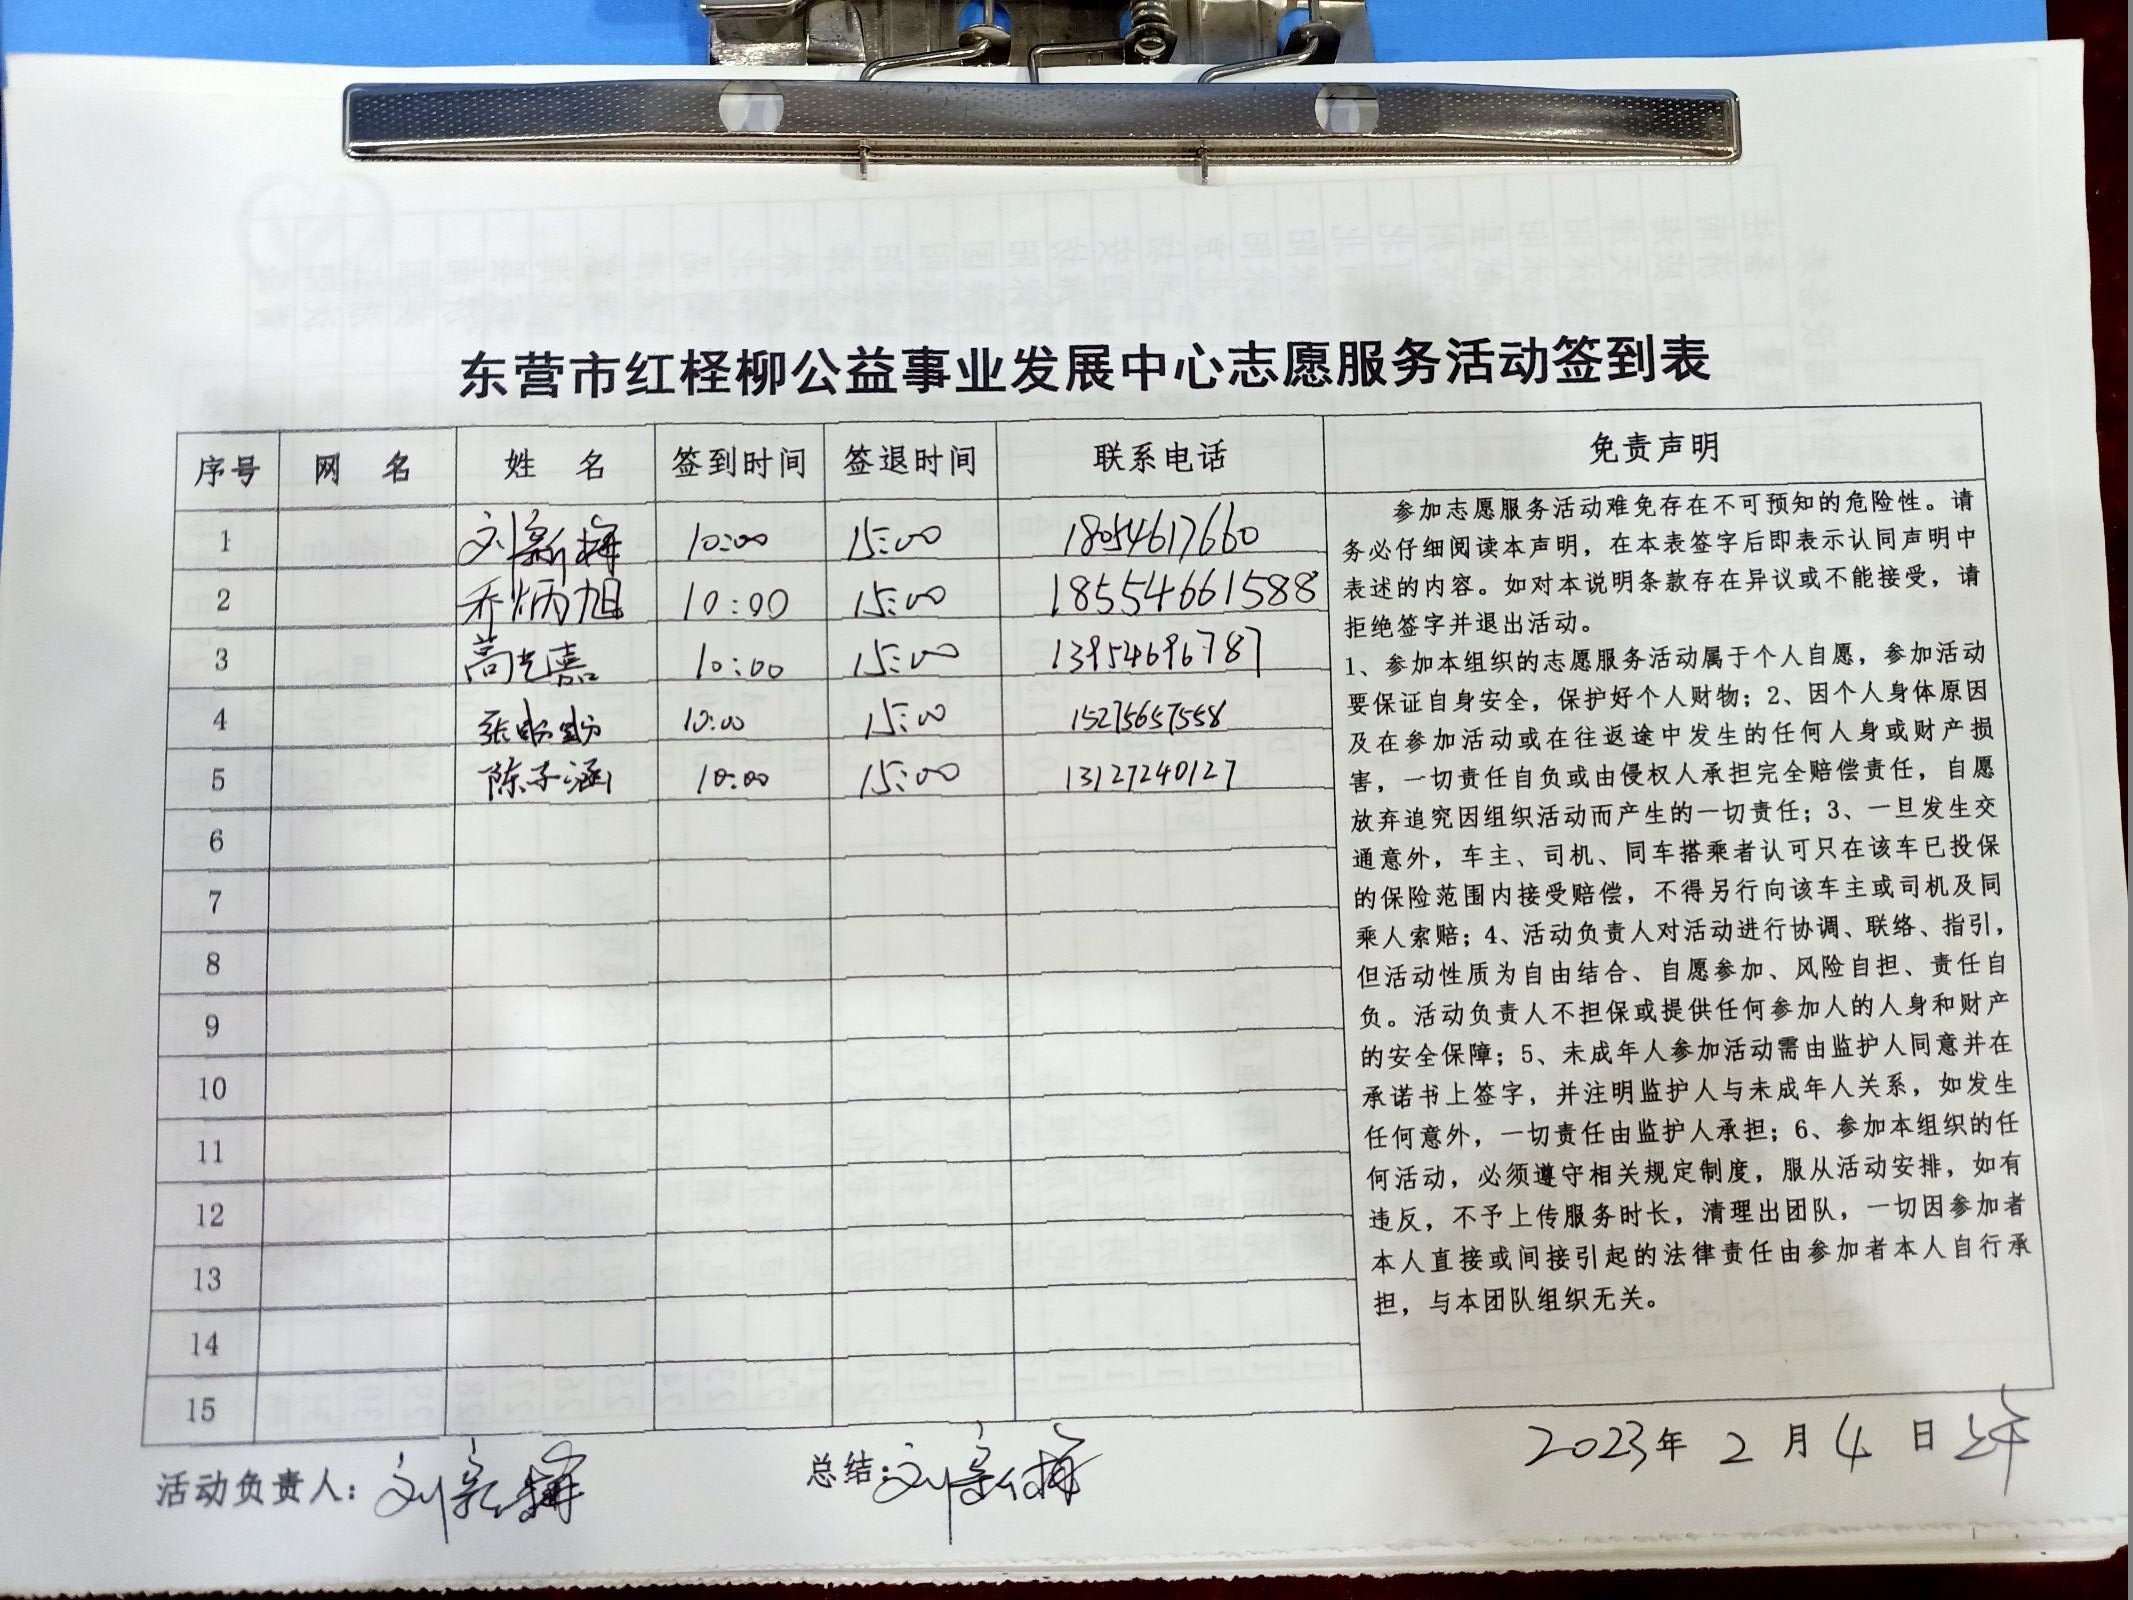 东营市红柽柳公益事业发展中心志愿服务活动签到表
序号 网 名 姓 名 签到时间 签退时间 联系电话 免责声明
1 刘新梅 10:00 15:00 18054617660
2 乔炳旭 10:00 15:00 18554661588
3 10:00 15:00 13954696787
4 张盼盼 10:00 15:00 15275657558
5 陈子涵 10:00 15:00 13127240127
6
7
8
9
10
11
12
13
14
15
参加志愿服务活动难免存在不可预知的危险性。请
务必仔细阅读本声明，在本表签字后即表示认同声明中
表述的内容。如对本说明条款存在异议或不能接受，请
拒绝签字并退出活动。
1、参加本组织的志愿服务活动属于个人自愿，参加活动
要保证自身安全，保护好个人财物；2、因个人身体原因
及在参加活动或在往返途中发生的任何人身或财产损
害，一切责任自负或由侵权人承担完全赔偿责任，自愿
放弃追究因组织活动而产生的一切责任；3、一旦发生交
通意外，车主、司机、同车搭乘者认可只在该车已投保
的保险范围内接受赔偿，不得另行向该车主或司机及同
乘人索赔；4、活动负责人对活动进行协调、联络、指引，
但活动性质为自由结合、自愿参加、风险自担、责任自
负。活动负责人不担保或提供任何参加人的人身和财产
的安全保障；5、未成年人参加活动需由监护人同意并在
承诺书上签字，并注明监护人与未成年人关系，如发生
任何意外，一切责任由监护人承担；6、参加本组织的任
何活动，必须遵守相关规定制度，服从活动安排，如有
违反，不予上传服务时长，清理出团队，一切因参加者
本人直接或间接引起的法律责任由参加者本人自行承
担，与本团队组织无关。
活动负责人：刘新梅 总结：刘新梅 2023年 2 月 4 日